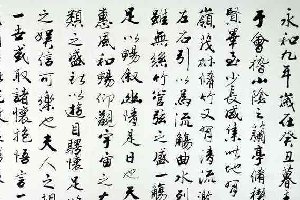 永和九年歲在癸丑暮
于會稽山陰之蘭亭脩禊
賢畢至少長咸集此地
嶺茂林脩竹又有清流激
左右引以為流觴曲水列
雖無絲竹管弦之盛一觴
足以暢敘幽情是日也天
惠風和暢仰觀宇宙之
類之盛所以遊目騁懷足以
之娛信可樂也夫人之相
一世或取諸懷抱悟言一